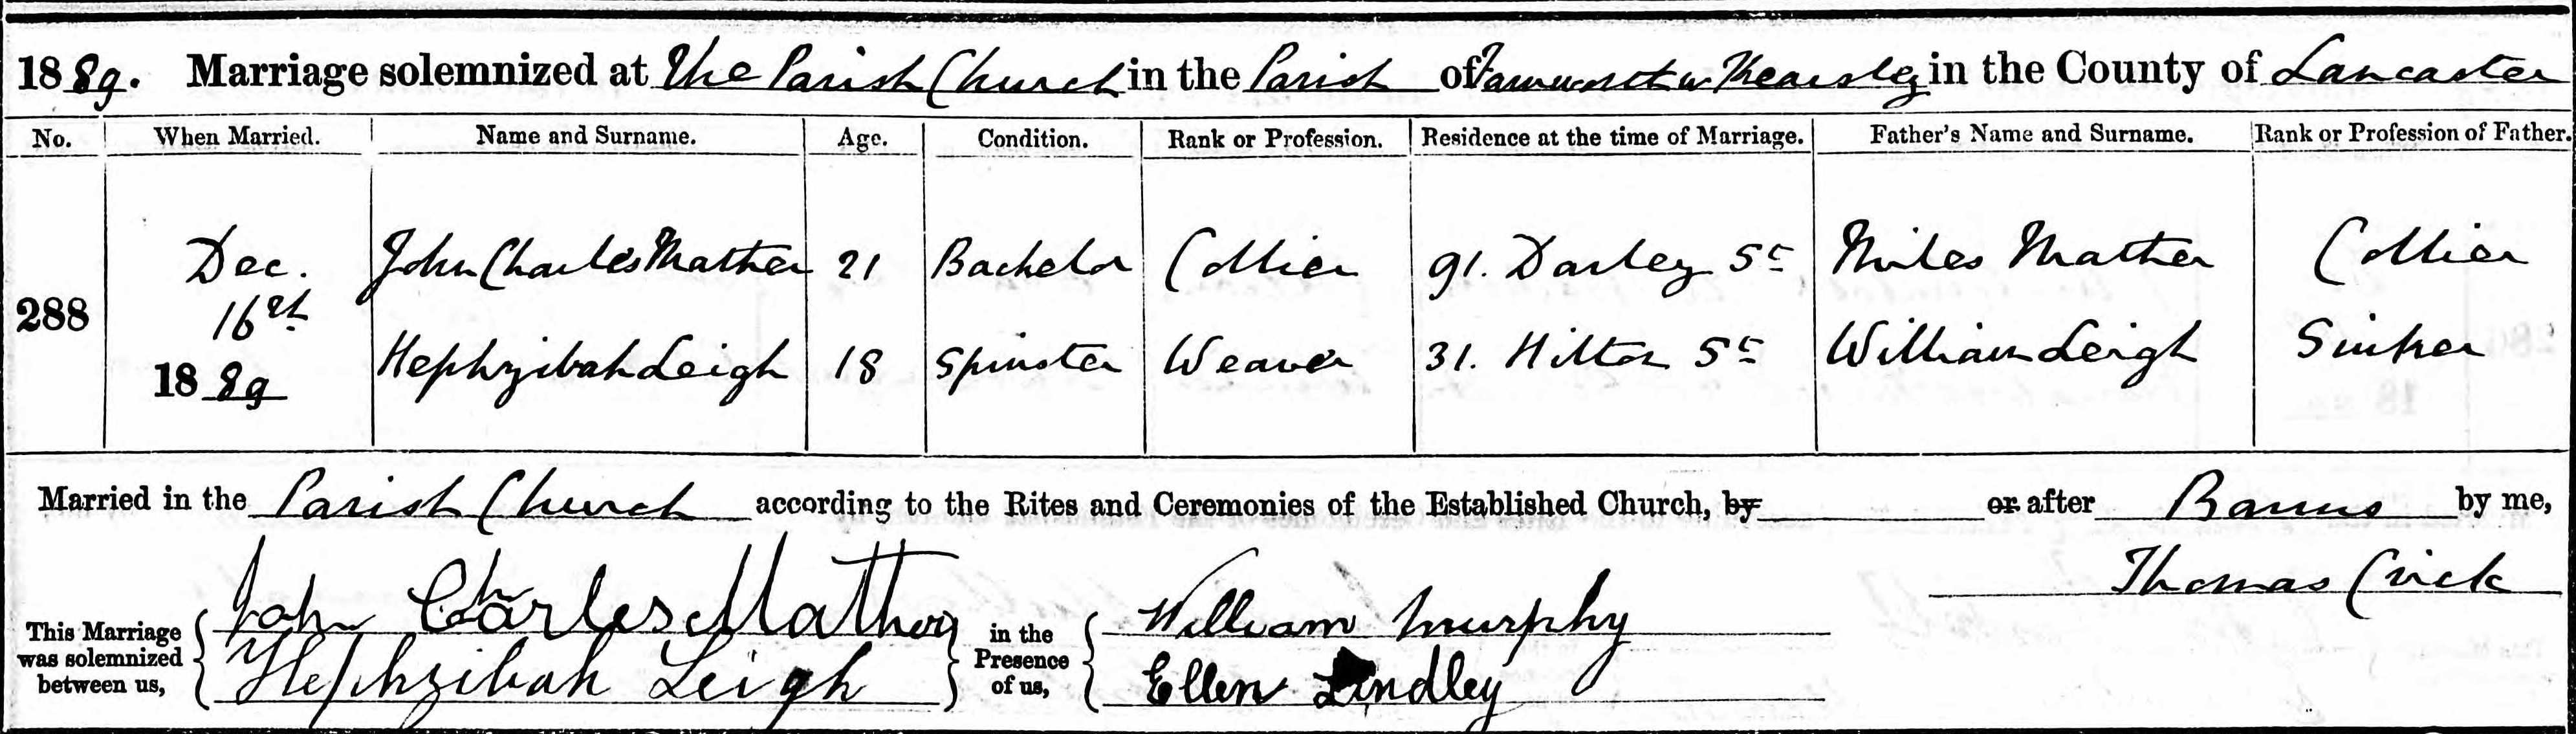 1889. Marriage solemnized at The Parish Church in the Parish of Farnworth w Kearsley in the County of Lancaster
No. When Married. Name and Surname. Age. Condition. Rank or Profession. Residence at the time of Marriage. Father's Name and Surname. Rank or Profession of Father.
Dec. John Charles Mather 21 Bachelor Collier 91. Darley St Miles Mather Collier
288 16th
1889 Hephzibah Leigh 18 Spinster Weaver 31. Hilton St William Leigh Sinker
Married in the Parish Church according to the Rites and Ceremonies of the Established Church, by or after Banns by me,
Thomas Crick
This Marriage was solemnized between us, John Charles Mather in the Presence of us, William Murphy
Hephzibah Leigh Ellen Lindley